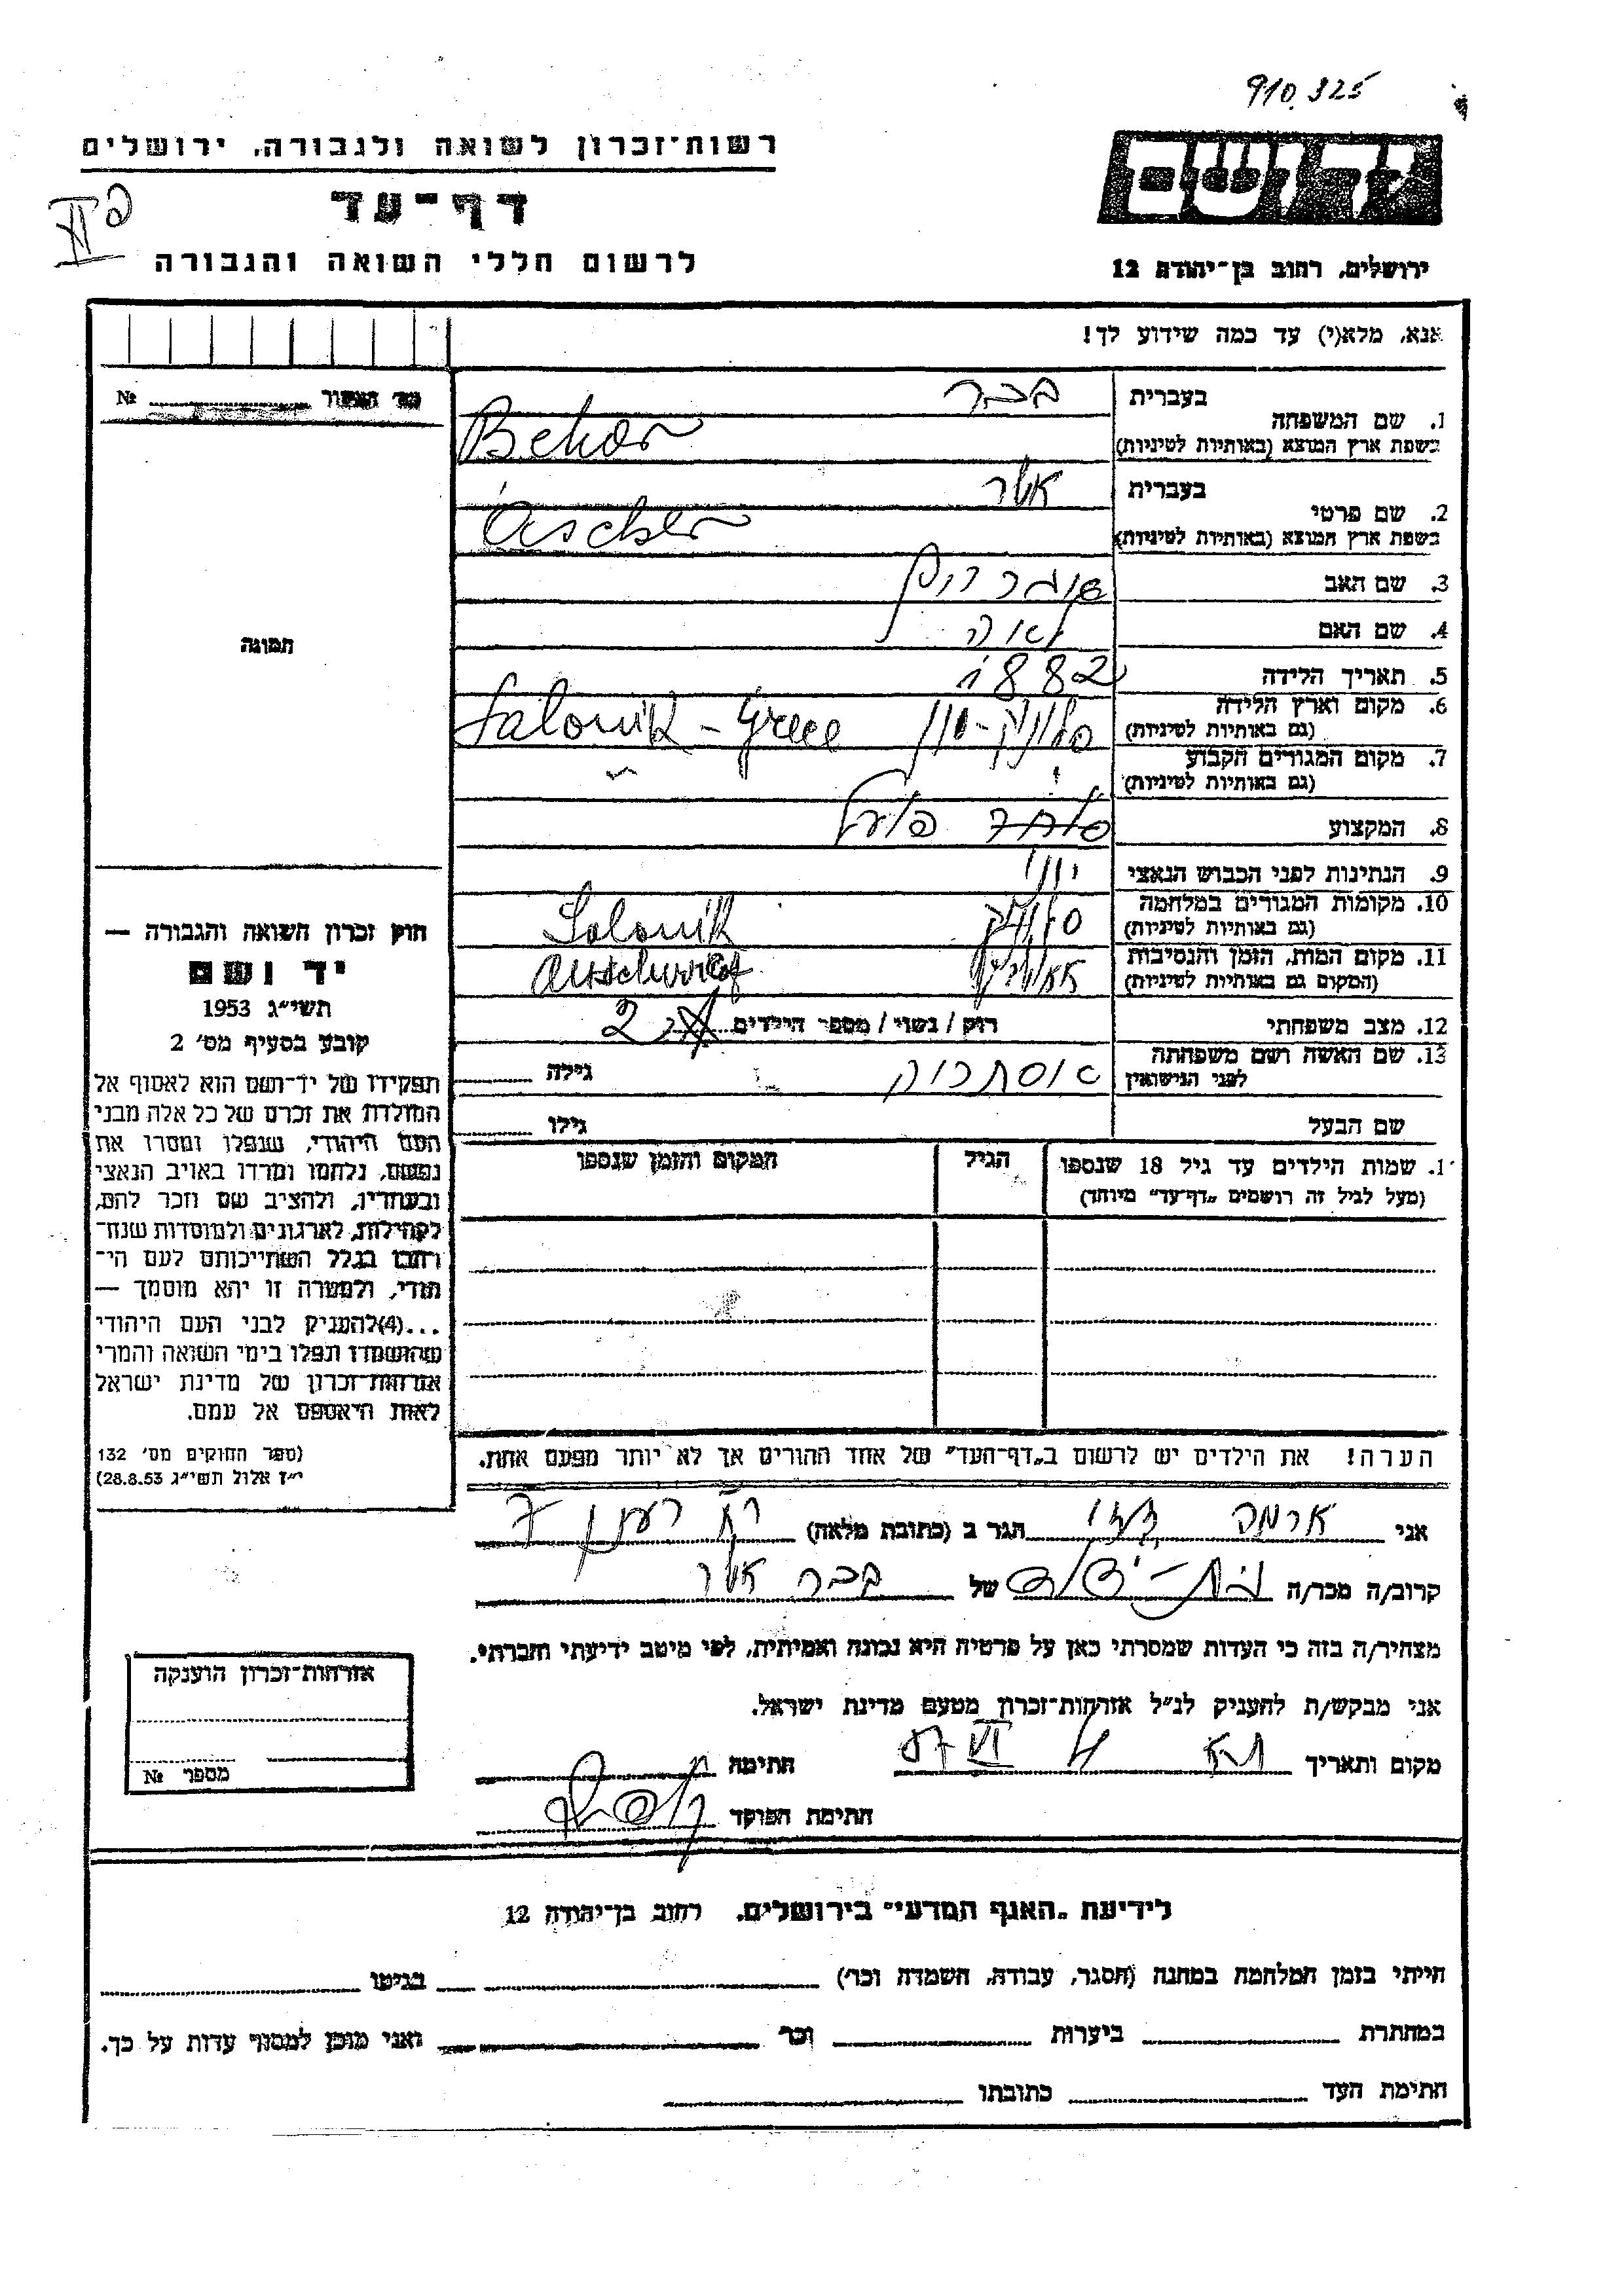 910.325
רשות־זכרון לשואה ולגבורה, ירושלים
דף־עד
לרשום חללי השואה והגבורה
ירושלים, רחוב בן־יהודה 12
אנא, מלא(י) עד כמה שידוע לך!
№
בעברית בכר
1. שם המשפחה
בשפת ארץ המוצא (באותיות לטיניות) Behor
בעברית אשר
2. שם פרטי
בשפת ארץ המוצא (באותיות לטיניות) Ascher
3. שם האב
4. שם האם לאה
5. תאריך הלידה 1882
6. מקום וארץ הלידה
(גם באותיות לטיניות) סלוניק-יוון Salonik - Greece
7. מקום המגורים הקבוע
(גם באותיות לטיניות)
8. המקצוע פועל
9. הנתינות לפני הכבוש הנאצי יווני
10. מקומות המגורים במלחמה
(גם באותיות לטיניות) סלוניק Salonik
11. מקום המות, הזמן והנסיבות
(המקום גם באותיות לטיניות)
12. מצב משפחתי רווק / נשוי / מספר הילדים 2
13. שם האשה ושם משפחתה
לפני הנישואין גילה
שם הבעל גילו
שמות הילדים עד גיל 18 שנספו הגיל המקום והזמן שנספו
(מעל לגיל זה רושמים „דף־עד" מיוחד)
תמונה
חוק זכרון השואה והגבורה —
יד ושם
תשי״ג 1953
קובע בסעיף מס׳ 2
תפקידו של יד־ושם הוא לאסוף אל
המולדת את זכרם של כל אלה מבני
העם היהודי, שנפלו ומסרו את
נפשם, נלחמו ומרדו באויב הנאצי
ובעוזריו, ולהציב שם וזכר להם,
לקהילות, לארגונים ולמוסדות שנח־
רבו בגלל השתייכותם לעם הי־
הודי, ולמטרה זו יהא מוסמך —
...(4)להעניק לבני העם היהודי
שהושמדו ונפלו בימי השואה והמרי
אזרחות־זכרון של מדינת ישראל
לאות היאספם אל עמם.
(ספר החוקים מס׳ 132
י״ז אלול תשי״ג 28.8.53)
הערה! את הילדים יש לרשום ב„דף־העד" של אחד ההורים אך לא יותר מפעם אחת.
אני הגר ב (כתובת מלאה)
קרוב/ה מכר/ה של בכר אשר
מצהיר/ה בזה כי העדות שמסרתי כאן על פרטיה היא נכונה ואמיתית, לפי מיטב ידיעתי והכרתי.
אני מבקש/ת להעניק לנ״ל אזרחות־זכרון מטעם מדינת ישראל.
מקום ותאריך ת״א 4 VI 57 חתימה
חתימת הפוקד
אזרחות־זכרון הוענקה
מספר №
לידיעת „האגף המדעי" בירושלים, רחוב בן־יהודה 12
הייתי בזמן המלחמה במחנה (הסגר, עבודה, השמדה וכו׳) בגיטו
במחתרת ביערות וכו׳ ואני מוכן למסור עדות על כך.
חתימת העד כתובתו